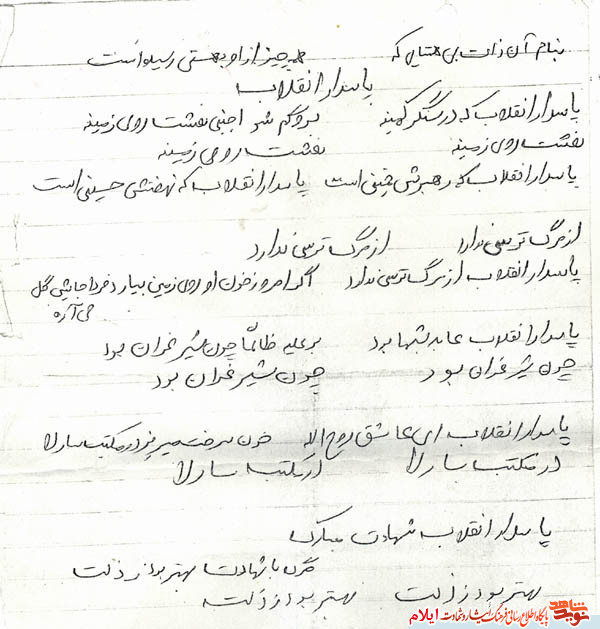 بنام آن ذات بی همتایی که همه چیز از او بهستی رسیده است
پاسدار انقلاب
پاسدار انقلاب که در سنگر کمینه برو گم شو اجنبی نفشت روی زمینه
نفشت روی زمینه نفشت روی زمینه
پاسدار انقلاب که رهبرش خمینی است پاسدار انقلاب که نهضتش حسینی است
از مرگ ترسی ندارد از مرگ ترسی ندارد
پاسدار انقلاب از مرگ ترسی ندارد اگر امروز خون او روی زمین بیارد فردا جایش گل
می آره
پاسدار انقلاب عابد شبها بود بر علیه ظالما چون شیر غران بود
چون شیر غران بود چون شیر غران بود
پاسدار انقلاب ای عاشق روح اله خون سرخت میریزد در مکتب سارلا
در مکتب سارلا در مکتب سارلا
پاسدار انقلاب شهادت مبارک
مرگ با شهادت بهتر بود از ذلت
بهتر بود از ذلت بهتر بود از ذلت
نوید شاهد
پایگاه اطلاع رسانی فرهنگ ایثار و شهادت ایلام